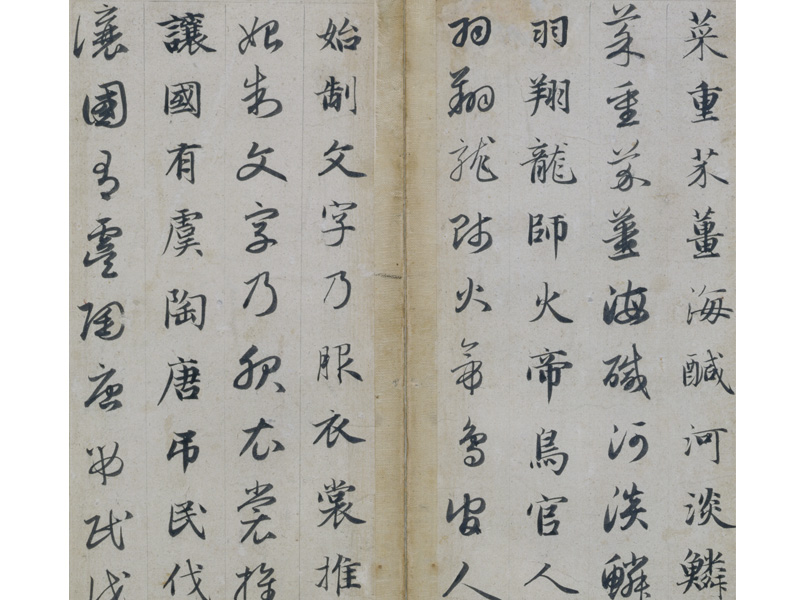 菜重芥薑海醎河淡鱗
菜重芥薑海鹹河淡鱗
羽翔龍師火帝鳥官人
羽翔龍師火帝鳥官人
始制文字乃服衣裳推
始制文字乃服衣裳推
讓國有虞陶唐吊民伐
讓國有虞陶唐弔民伐